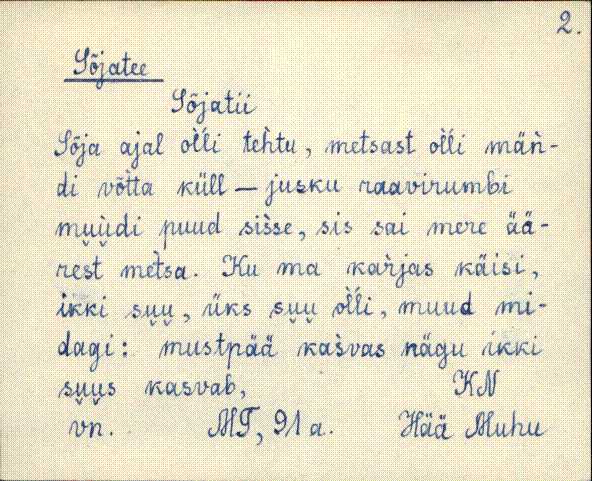 2.
Sõjatee
Sõjatii
Sõja ajal ol̀li teh̀tu, metsast ol̀li mäǹ-
di võt̀ta küll – jusku raavirumbi
mu̬u̬̇di puud sis̀se, sis sai mere ää-
rest mets̀a. Ku ma kar̀jas käisi,
ikki su̬u̬, üks su̬u̬ ol̀li, muud mi-
dagi: mustpää kas̀vas nägu ikki
su̬u̬s kasvab,
KN
vn. MT, 91 a. Hää Muhu